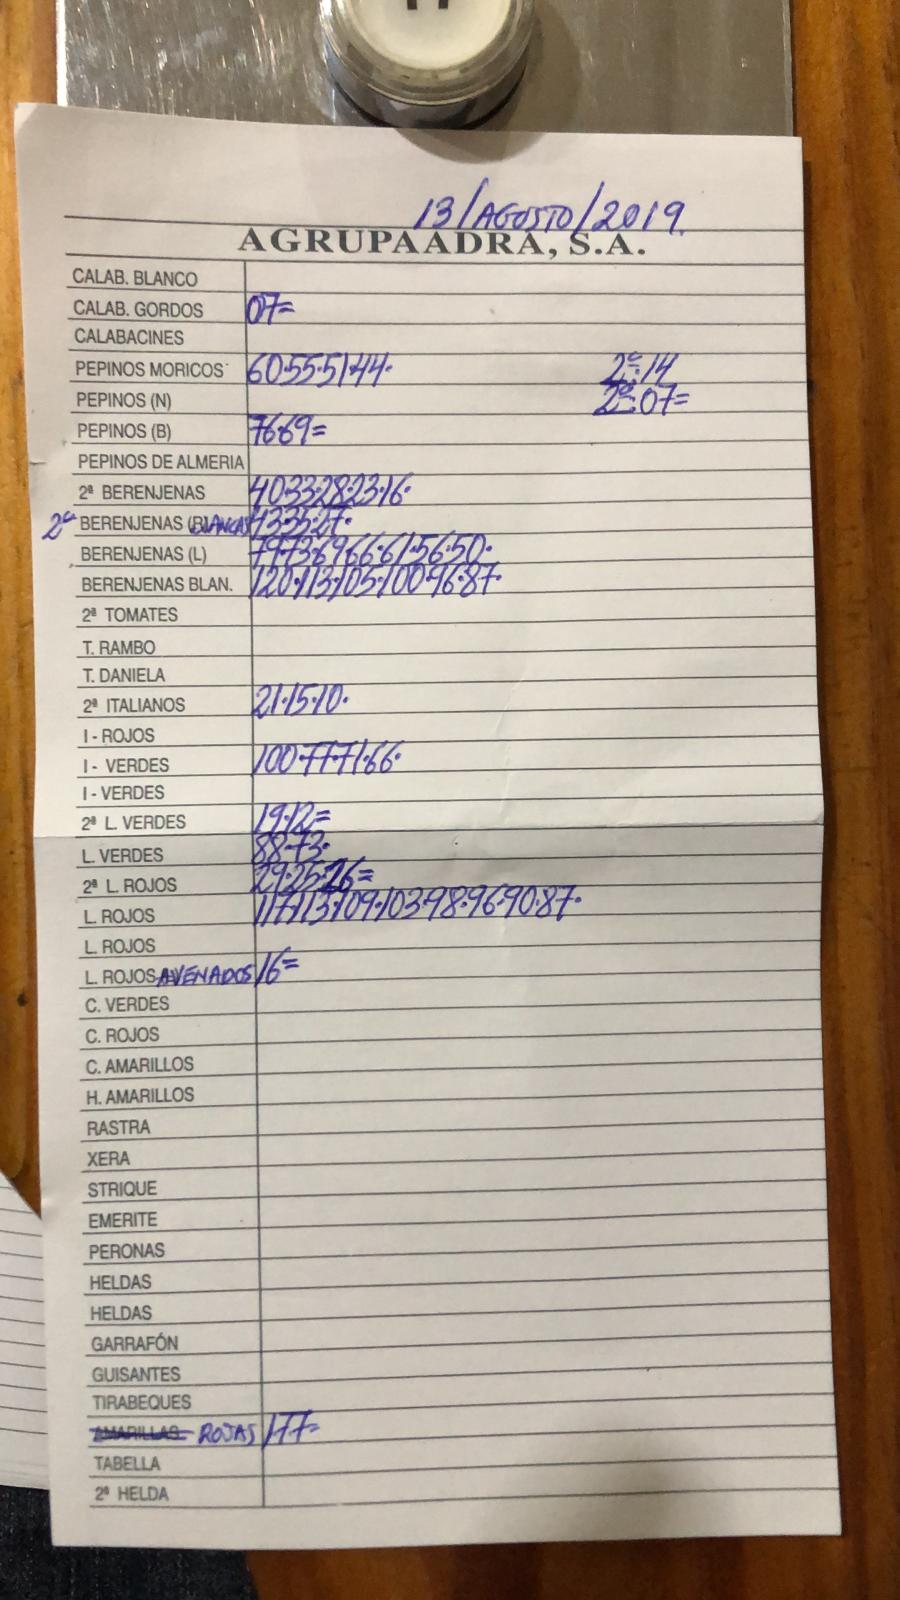 13/AGOSTO/2019.
AGRUPAADRA, S.A.
CALAB. BLANCO
CALAB. GORDOS 07=
CALABACINES
PEPINOS MORICOS 60·55·51·44· 2ª:14
PEPINOS (N) 2ª:07=
PEPINOS (B) 76·69=
PEPINOS DE ALMERIA
2ª BERENJENAS 40·33·28·23·16·
2ª BERENJENAS (R)BLANCAS 43·35·27·
BERENJENAS (L) 79·73·69·66·61·56·50·
BERENJENAS BLAN. 120·113·105·100·96·87·
2ª TOMATES
T. RAMBO
T. DANIELA
2ª ITALIANOS 21·15·10·
I - ROJOS
I - VERDES 100·77·71·66·
I - VERDES
2ª L. VERDES 19·12=
L. VERDES 88·73·
2ª L. ROJOS 29·25·26=
L. ROJOS 117·113·109·103·98·96·90·87·
L. ROJOS
L. ROJOS AVENADOS 16=
C. VERDES
C. ROJOS
C. AMARILLOS
H. AMARILLOS
RASTRA
XERA
STRIQUE
EMERITE
PERONAS
HELDAS
HELDAS
GARRAFÓN
GUISANTES
TIRABEQUES
AMARILLAS ROJAS 177=
TABELLA
2ª HELDA